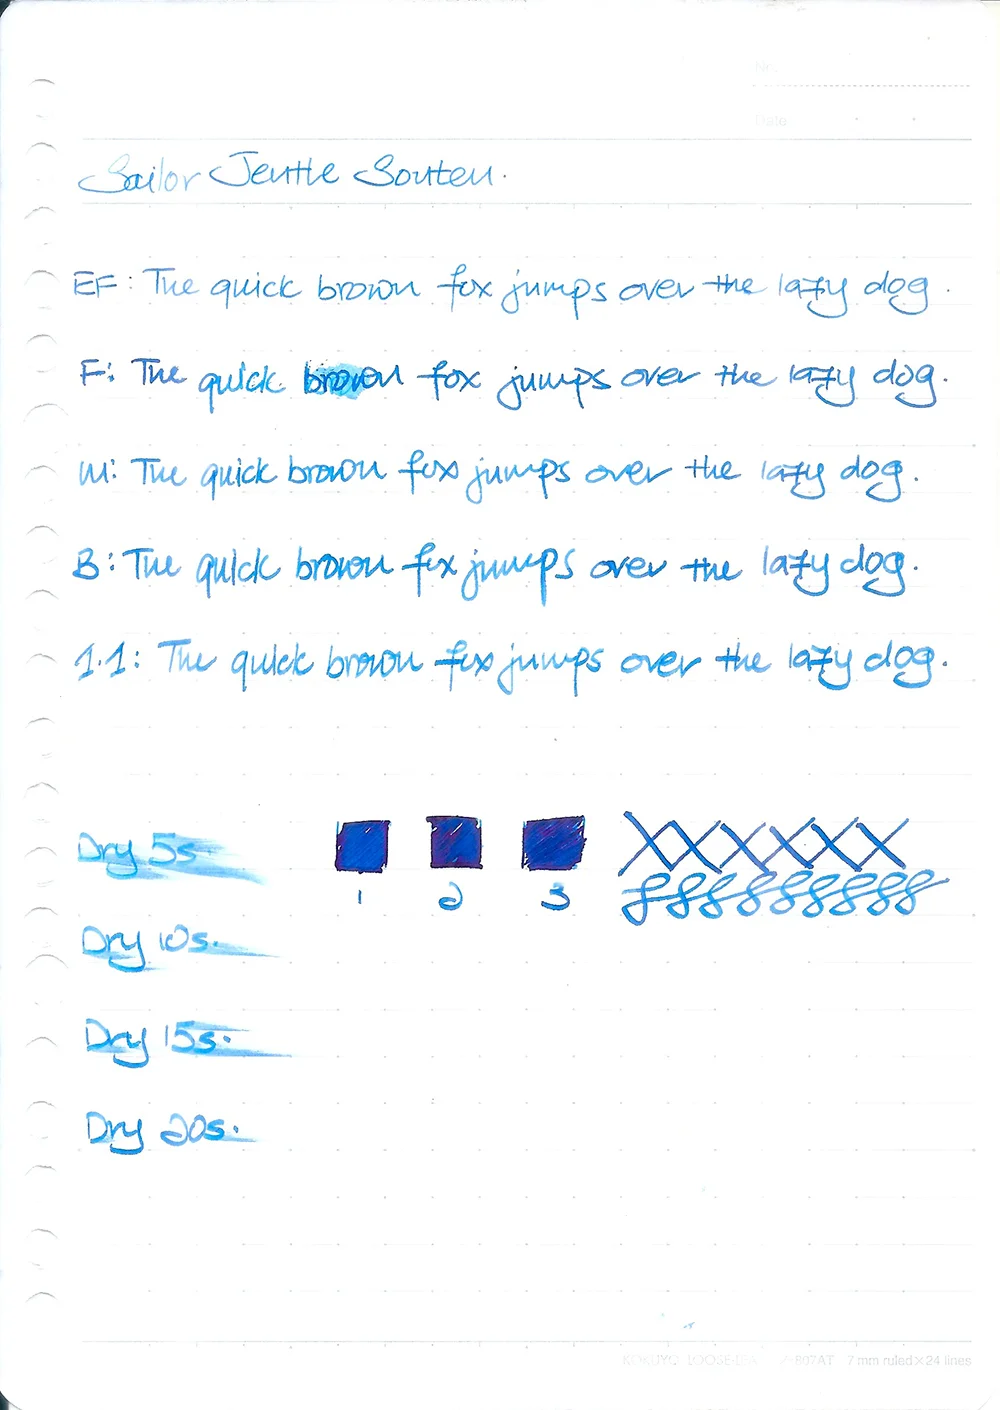 No.
Date
Sailor Jentle Souten.
EF: The quick brown fox jumps over the lazy dog.
F: The quick brown fox jumps over the lazy dog.
M: The quick brown fox jumps over the lazy dog.
B: The quick brown fox jumps over the lazy dog.
1.1: The quick brown fox jumps over the lazy dog.
Dry 5s.
1 2 3
Dry 10s.
Dry 15s.
Dry 20s.
KOKUYO LOOSE-LEAF 807AT 7 mm ruled×24 lines